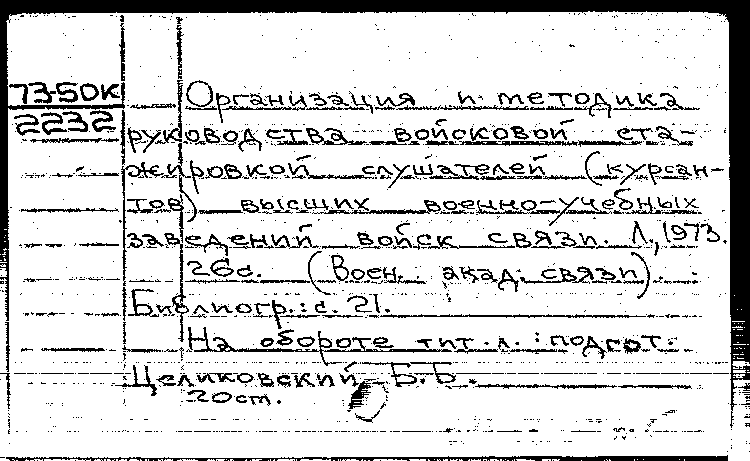 73-50К
2232
Организация и методика
руководства войсковой ста-
жировкой слушателей (курсан-
тов) высших военно-учебных
заведений войск связи. Л., 1973.
26с. (Воен. акад. связи).
Библиогр.: с. 21.
На обороте тит. л.: подгот.
Целиковский Б.Б.
20см.